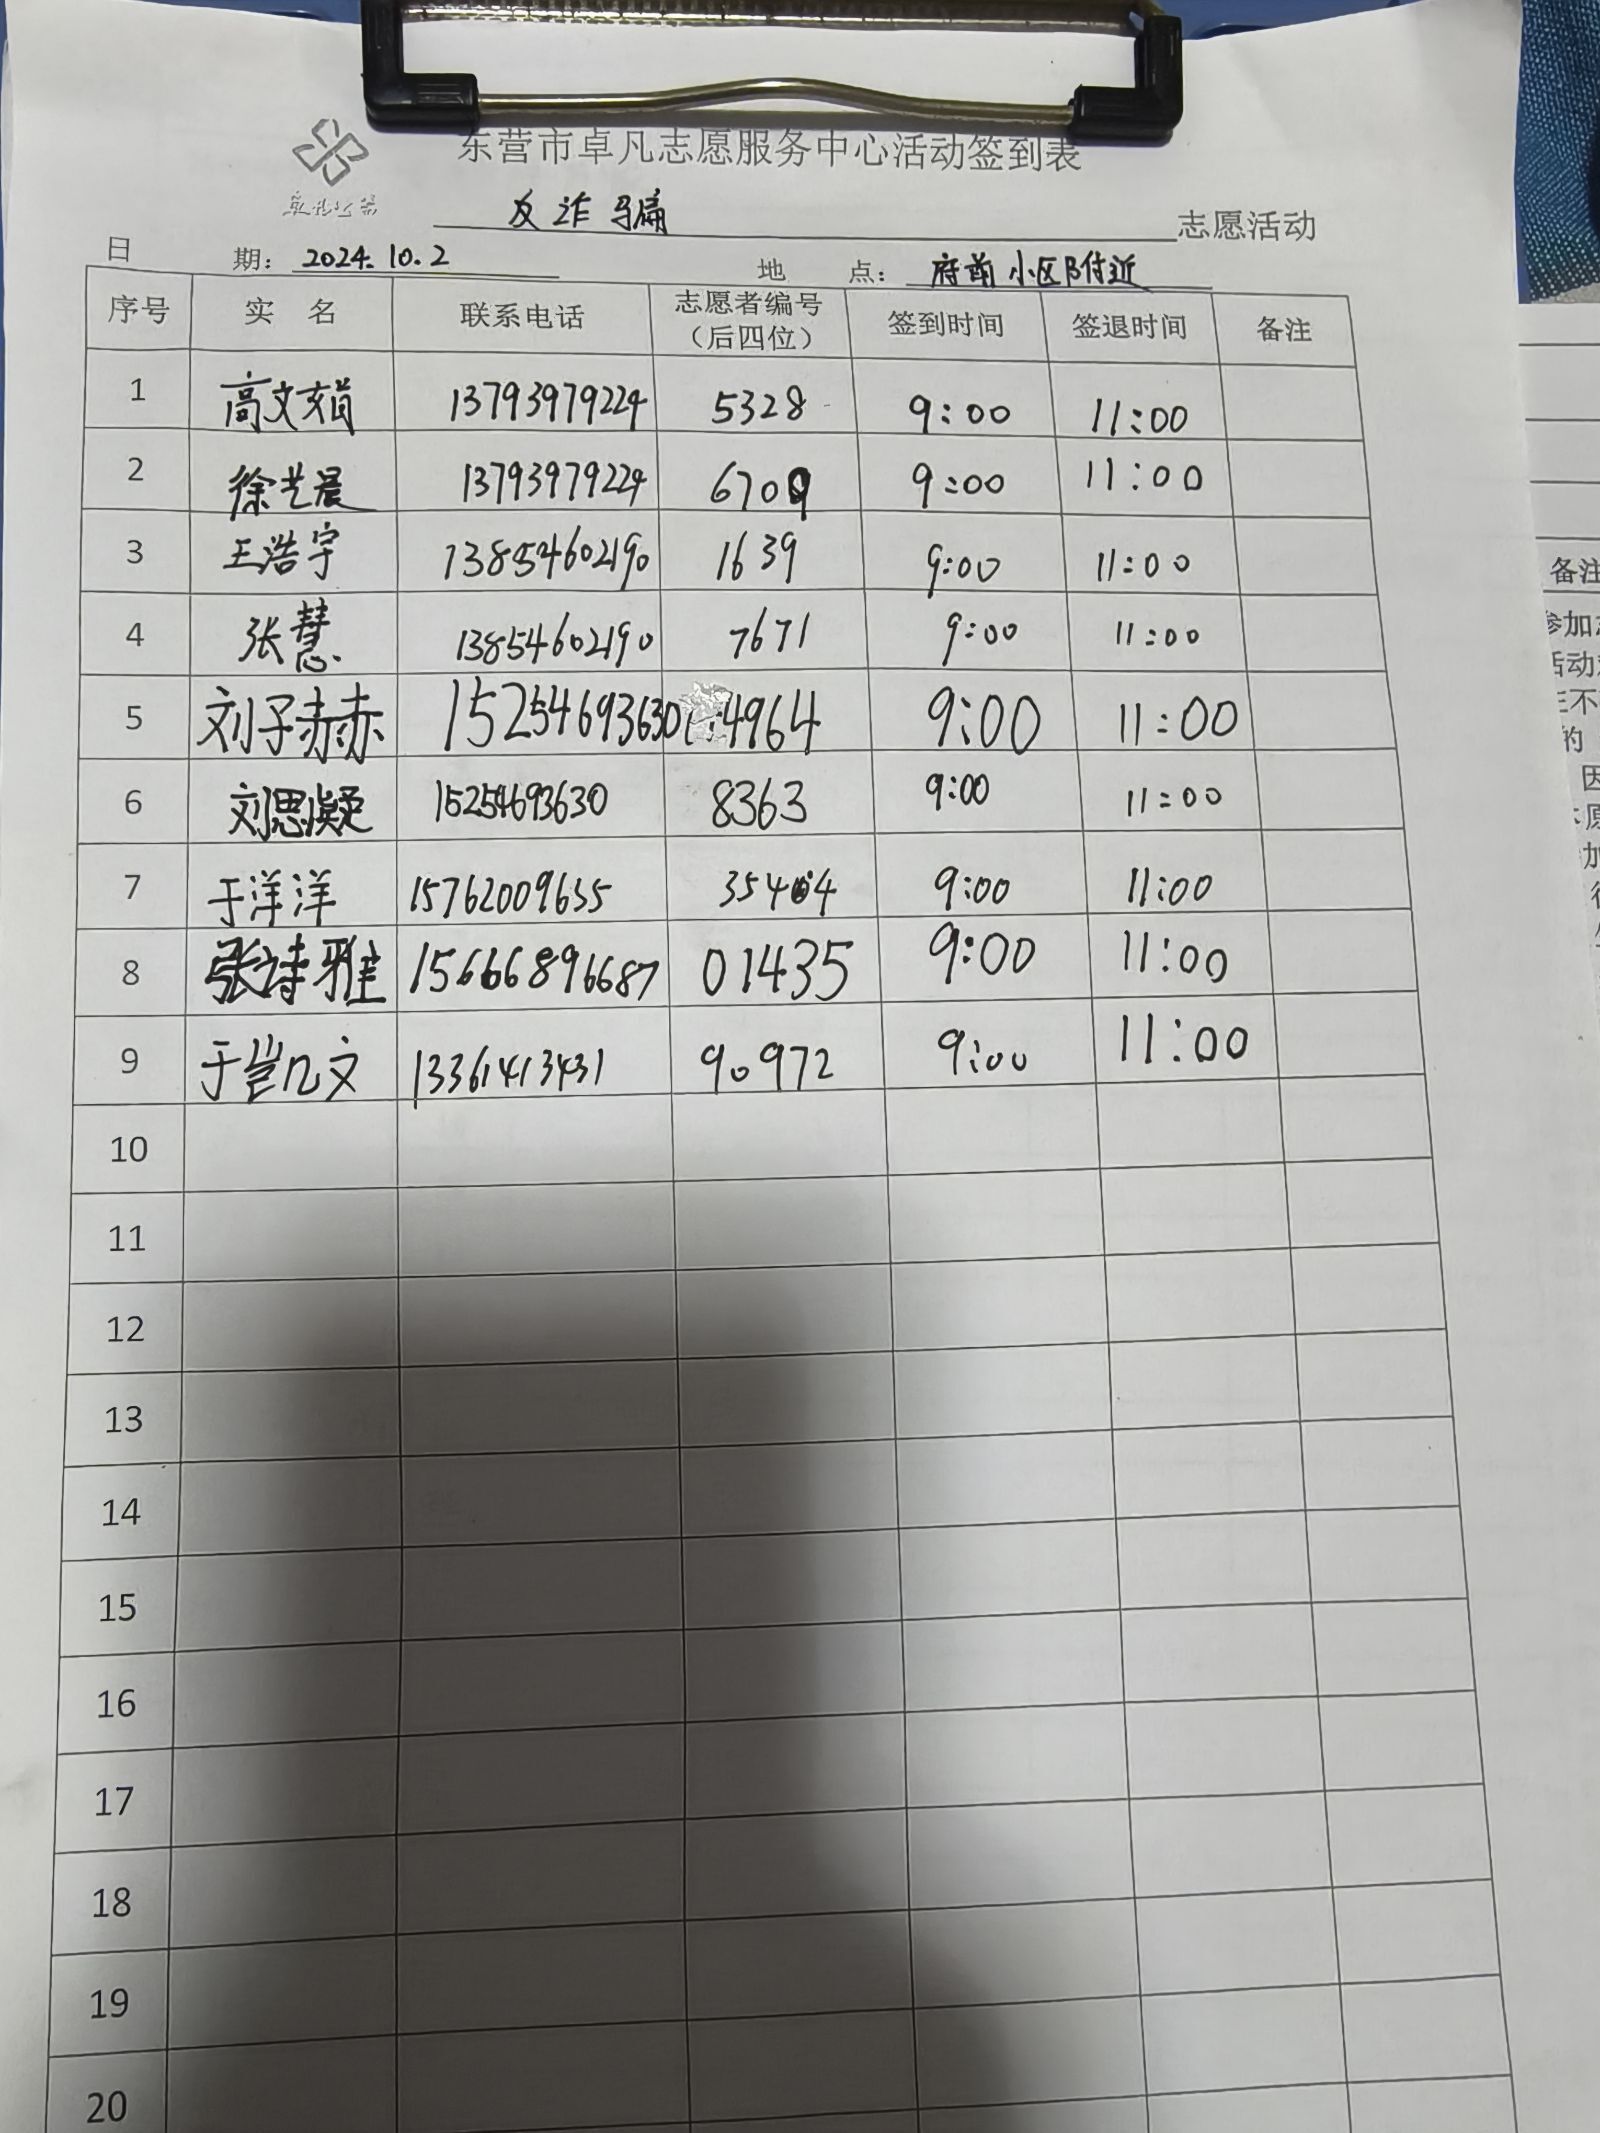 东营市卓凡志愿服务中心活动签到表
反诈骗 志愿活动
日 期： 2024.10.2 地 点： 府前小区附近
序号 实 名 联系电话 志愿者编号（后四位） 签到时间 签退时间 备注
1 高文 13793979224 5328 9:00 11:00
2 徐艺晨 13793979224 6709 9:00 11:00
3 王浩宇 13854602190 1639 9:00 11:00
4 张慧 13854602190 7671 9:00 11:00
5 刘子赫 15254693630 4964 9:00 11:00
6 刘思凝 15254693630 8363 9:00 11:00
7 于洋洋 15762009635 35404 9:00 11:00
8 张诗雅 15666896687 01435 9:00 11:00
9 于岂几文 13361413431 90972 9:00 11:00
10
11
12
13
14
15
16
17
18
19
20
备注
参加
活动
的
因